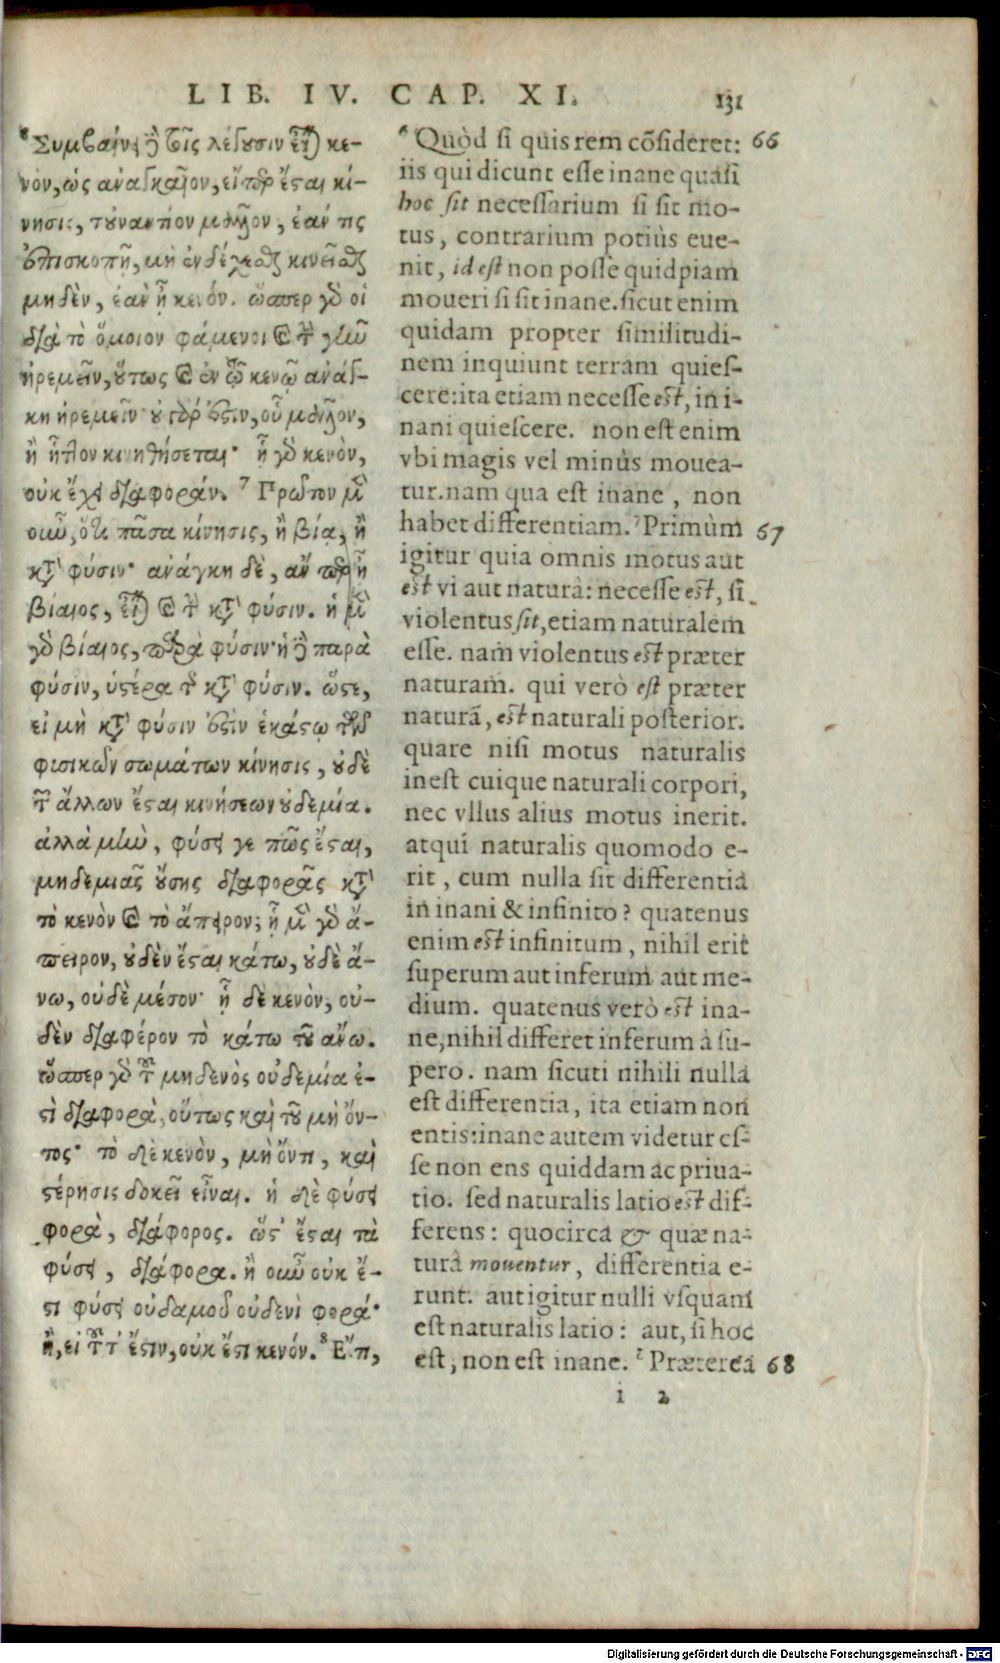 LIB. IV. CAP. XI. 131
⁶Συμβαίνει δὲ τοῖς λέγουσιν εἶναι κε-
νὸν, ὡς ἀναγκαῖον, εἴπερ ἔσται κί-
νησις, τοὐναντίον μᾶλλον, ἐάν τις
ἐπισκοπῇ, μὴ ἐνδέχεσθαι κινεῖσθαι
μηδὲν, ἐὰν ᾖ κενόν. ὥσπερ γὰρ οἱ
διὰ τὸ ὅμοιον φάμενοι καὶ τὴν γῆν
ἠρεμεῖν, οὕτως καὶ ἐν τῷ κενῷ ἀνάγ-
κη ἠρεμεῖν· οὐ γάρ ἐστιν, οὗ μᾶλλον,
ἢ ἧττον κινηθήσεται· ᾗ γὰρ κενὸν,
οὐκ ἔχει διαφοράν. ⁷ Πρῶτον μὲν
οὖν, ὅτι πᾶσα κίνησις, ἢ βίᾳ, ἢ
κατὰ φύσιν· ἀνάγκη δὲ, ἄν περ ᾖ
βίαιος, εἶναι καὶ τὴν κατὰ φύσιν. ἡ μὲν
γὰρ βίαιος, παρὰ φύσιν· ἡ δὲ παρὰ
φύσιν, ὑστέρα τῆς κατὰ φύσιν. ὥστε,
εἰ μὴ κατὰ φύσιν ἐστὶν ἑκάστῳ τῶν
φισικῶν σωμάτων κίνησις, οὐδὲ
τῶν ἄλλων ἔσται κινήσεων οὐδεμία.
ἀλλὰ μὴν, φύσει γε πῶς ἔσται,
μηδεμιᾶς οὔσης διαφορᾶς κατὰ
τὸ κενὸν καὶ τὸ ἄπειρον; ᾗ μὲν γὰρ ἄ-
πειρον, οὐδὲν ἔσται κάτω, οὐδὲ ἄ-
νω, οὐδὲ μέσον· ᾗ δὲ κενὸν, οὐ-
δὲν διαφέρον τὸ κάτω τοῦ ἄνω.
ὥσπερ γὰρ τοῦ μηδενὸς οὐδεμία ἐ-
στὶ διαφορὰ, οὕτως καὶ τοῦ μὴ ὄν-
τος· τὸ δὲ κενὸν, μὴ ὄντι, καὶ
στέρησις δοκεῖ εἶναι. ἡ δὲ φύσει
φορὰ, διάφορος. ὥστ' ἔσται τὰ
φύσει, διάφορα. ἢ οὖν οὐκ ἔ-
στι φύσει οὐδαμοῦ οὐδενὶ φορά·
ἢ, εἰ τοῦτ' ἔστιν, οὐκ ἔστι κενόν. ⁸ Ἔτι,
⁶ Quòd si quis rem cõsideret: 66
iis qui dicunt esse inane quasi
hoc sit necessarium si sit mo-
tus, contrarium potiùs eue-
nit, id est non posse quidpiam
moueri si sit inane. sicut enim
quidam propter similitudi-
nem inquiunt terram quies-
cere: ita etiam necesse est, in i-
nani quiescere. non est enim
vbi magis vel minùs mouea-
tur. nam qua est inane, non
habet differentiam. ⁷Primùm 67
igitur quia omnis motus aut
est vi aut naturâ: necesse est, si
violentus sit, etiam naturalem
esse. nam violentus est præter
naturam. qui verò est præter
naturã, est naturali posterior.
quare nisi motus naturalis
inest cuique naturali corpori,
nec vllus alius motus inerit.
atqui naturalis quomodo e-
rit, cum nulla sit differentia
in inani & infinito? quatenus
enim est infinitum, nihil erit
superum aut inferum aut me-
dium. quatenus verò est ina-
ne, nihil differet inferum à su-
pero. nam sicuti nihili nulla
est differentia, ita etiam non
entis: inane autem videtur es-
se non ens quiddam ac priua-
tio. sed naturalis latio est dif-
ferens: quocirca & quæ na-
turâ mouentur, differentia e-
runt. aut igitur nulli vsquam
est naturalis latio: aut, si hoc
est, non est inane. ⁸ Præterea 68
i 2
Digitalisierung gefördert durch die Deutsche Forschungsgemeinschaft - DFG